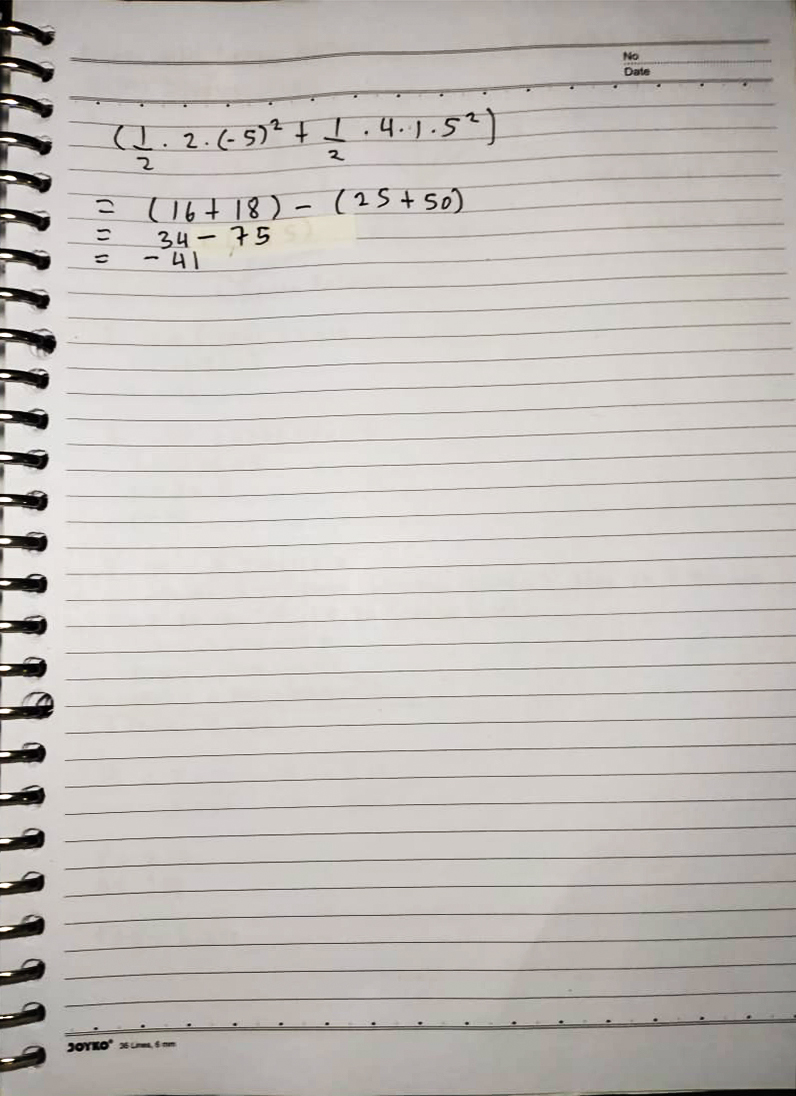 No
Date
(1/2 . 2 . (-5)² + 1/2 . 4 . 1 . 5²)
= (16 + 18) - (25 + 50)
= 34 - 75
= - 41
JOYKO® 36 Lines, 6 mm